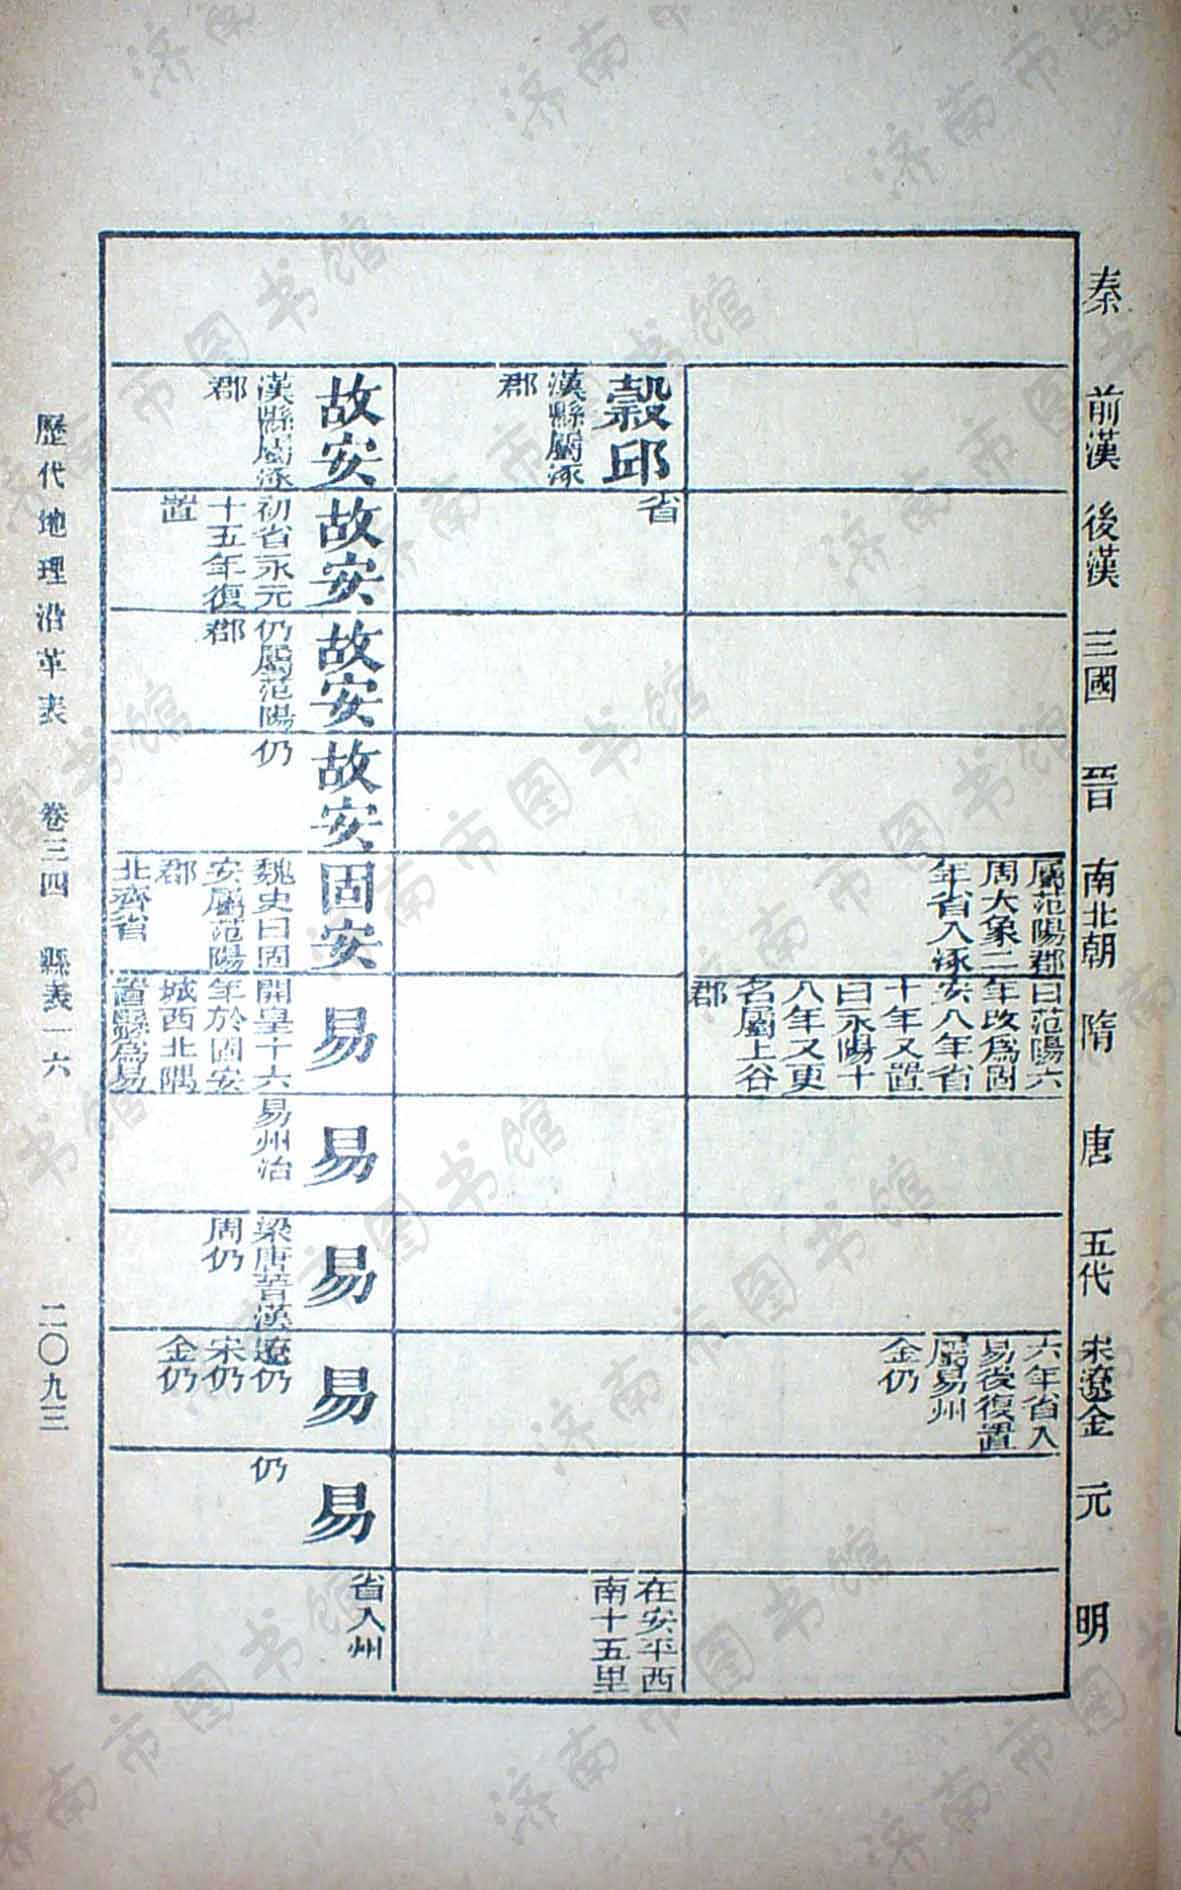 秦
前漢
後漢
三國
晉
南北朝
隋
唐
五代
宋遼金
元
明
屬范陽郡
周大象二
年省入涿
曰范陽六
年改為固
安八年省
十年又置
曰永陽十
八年又更
名屬上谷
郡
六年省入
易後復置
屬易州
金仍
穀邱
漢縣屬涿
郡
省
在安平西
南十五里
故安
漢縣屬涿
郡
故安
初省永元
十五年復
置
故安
仍屬范陽
郡
故安
仍
固安
魏史曰固
安屬范陽
郡
北齊省
易
開皇十六
年於固安
城西北隅
置縣為易
易
易州治
易
梁唐晉漢
周仍
易
遼仍
宋仍
金仍
易
仍
省入州
歷代地理沿革表 卷三四 縣表一六 二〇九三
济南市图书馆